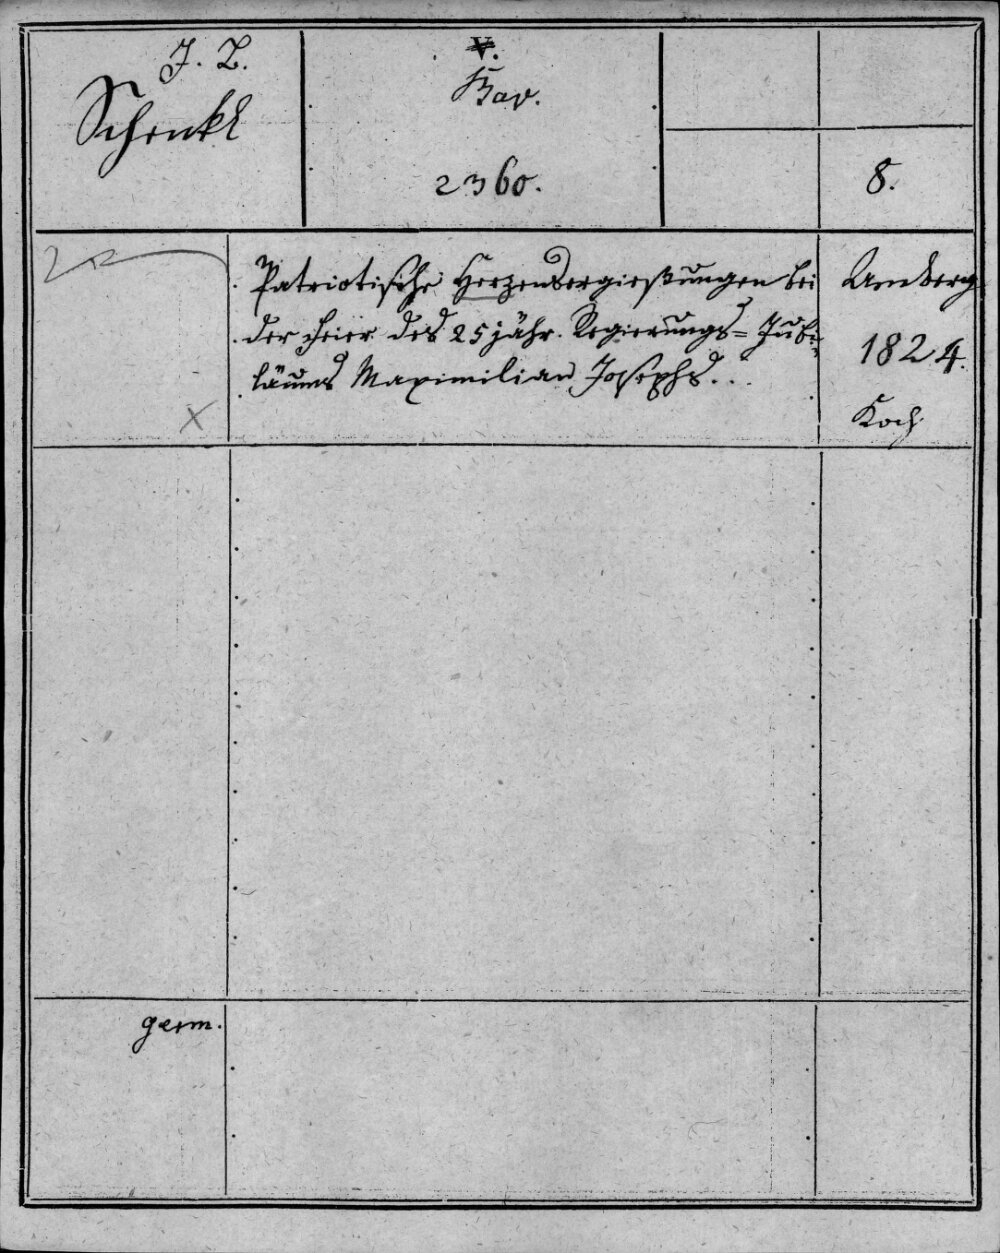 J. B.
Schenkl
V.
Bav.
2360.
8.
Patriotische Herzensergießungen bei
der Feier des 25jähr. Regierungs=Jubi-
läums Maximilian Josephs...
Amberg
1824.
Koch
X
germ.